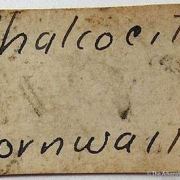 halcocit
ornwall